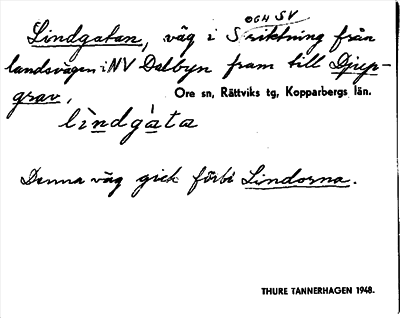 OCH SV
Lindgatan, väg i S riktning från
landsvägen i NV Dalbyn fram till Djup-
grav,
Ore sn, Rättviks tg, Kopparbergs län.
lìndgàta
Denna väg gick förbi Lindorna.
THURE TANNERHAGEN 1948.